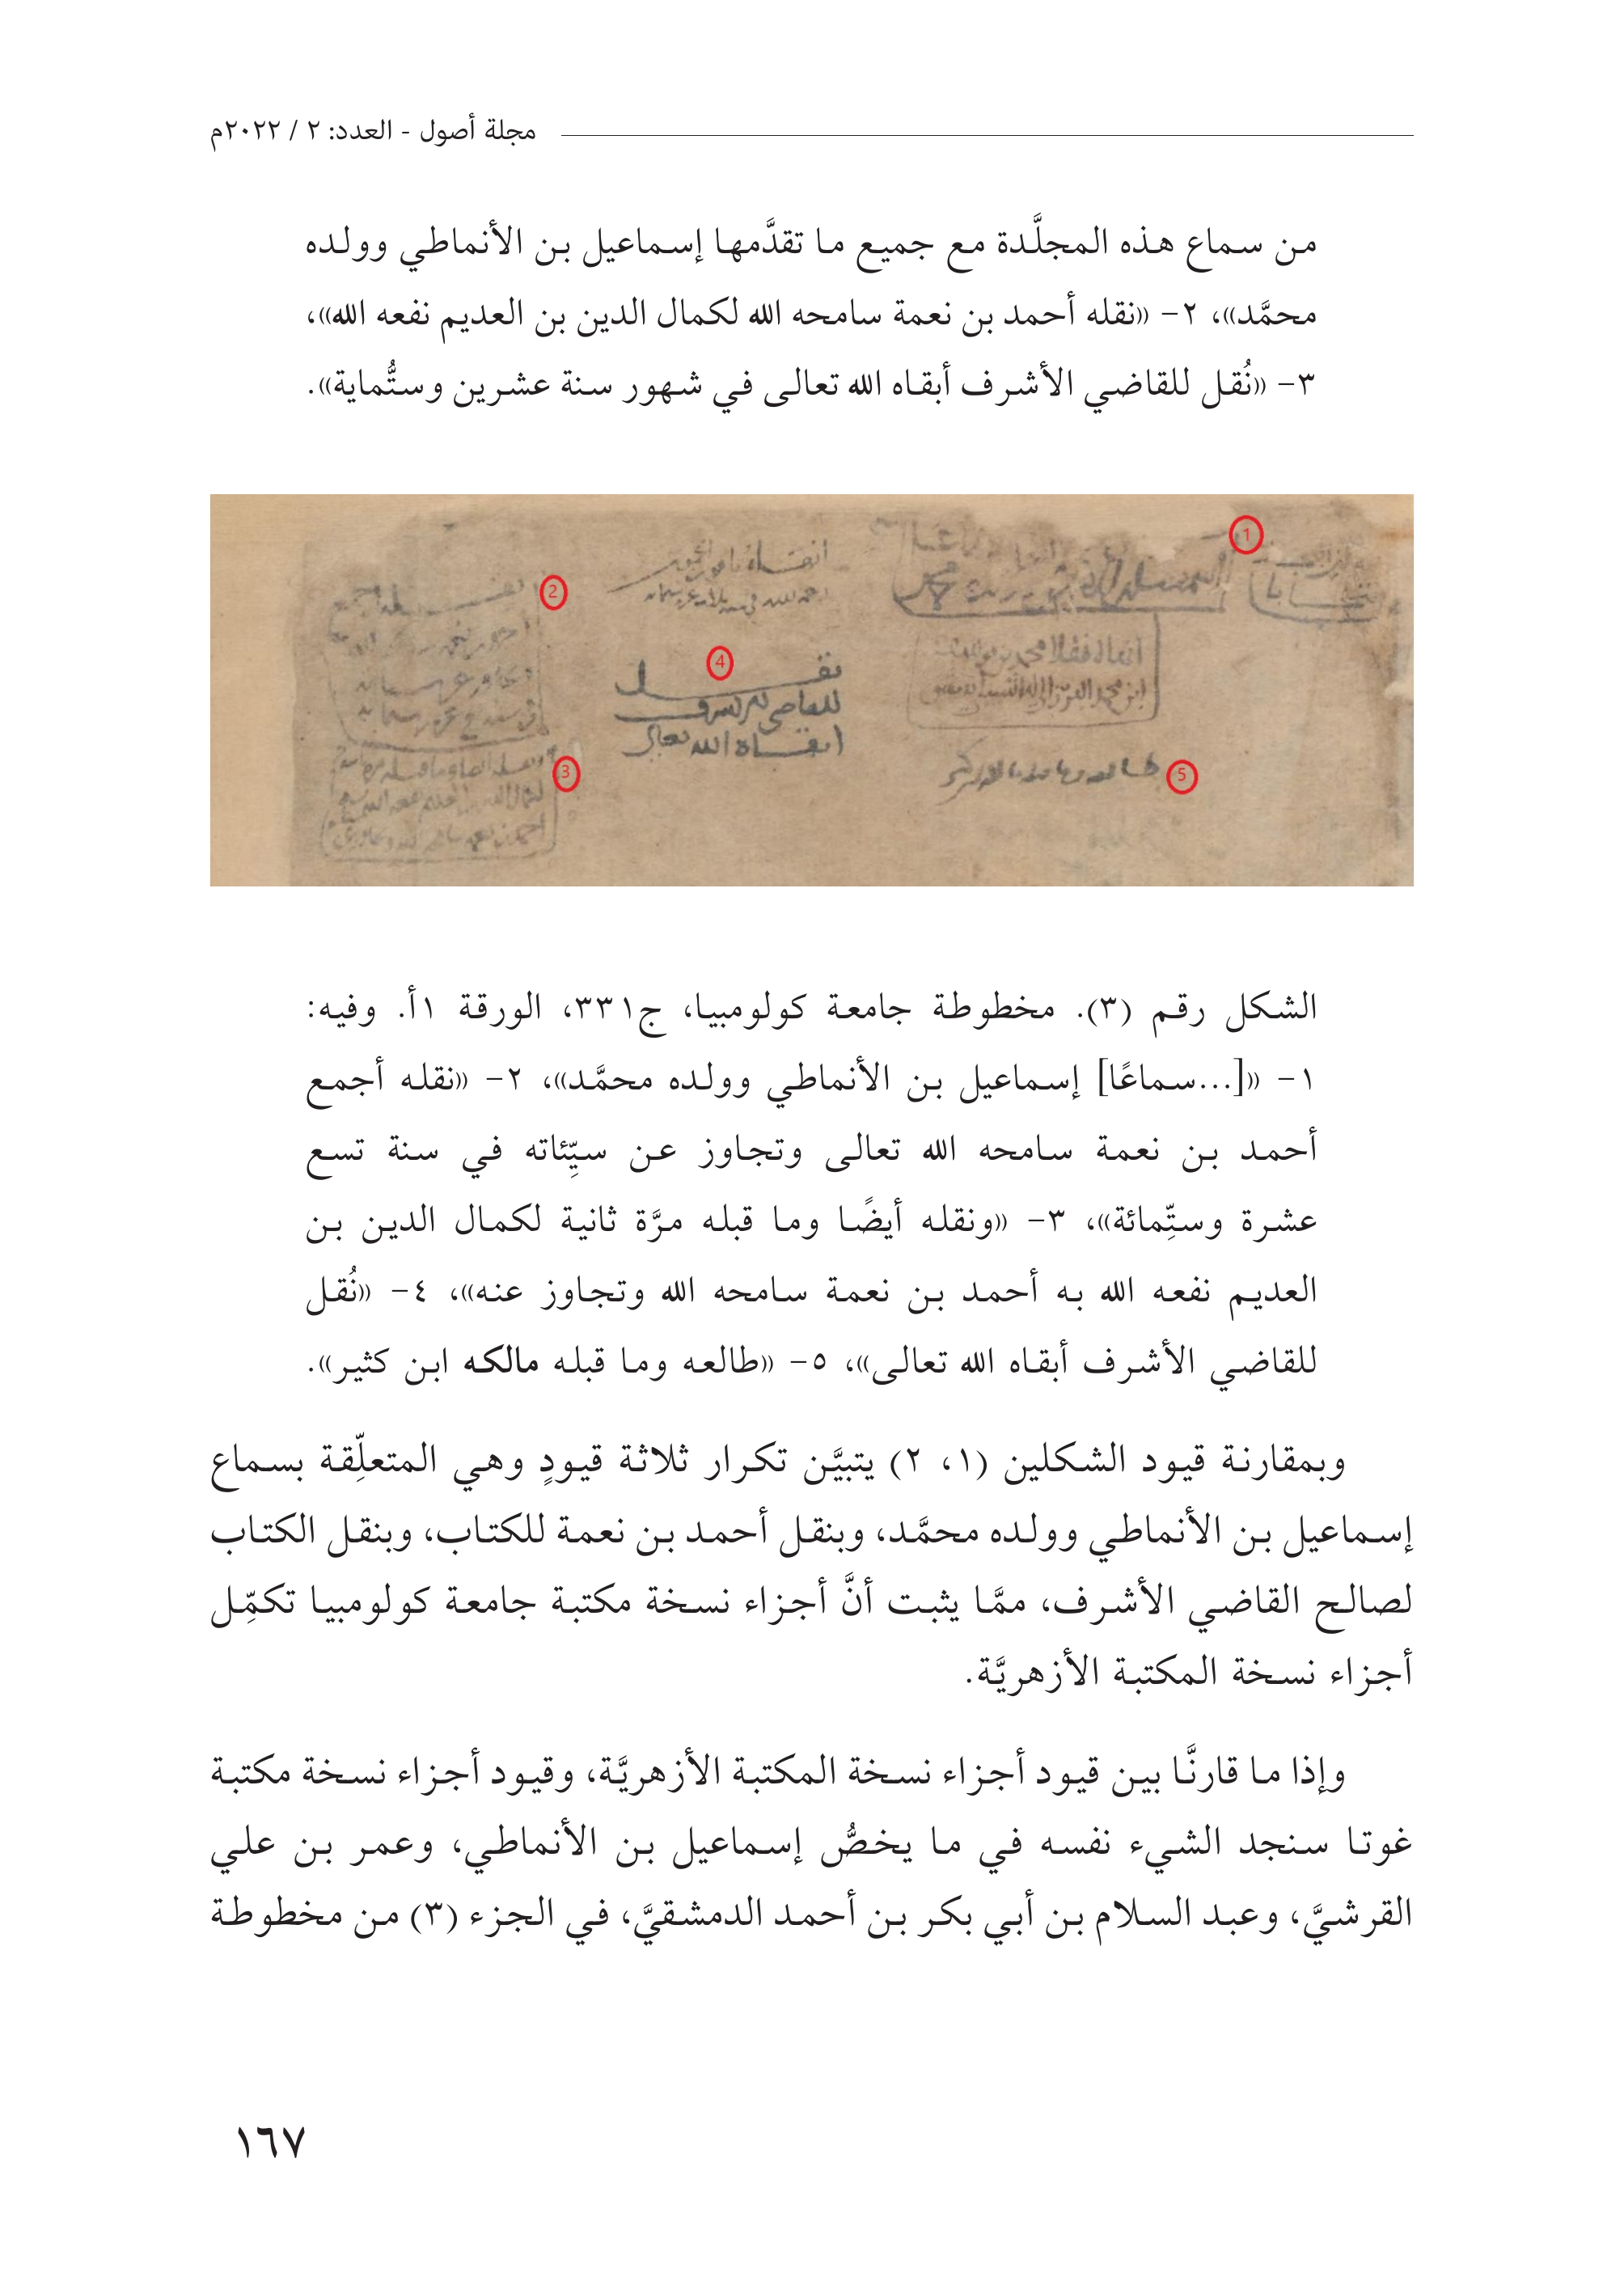 مجلة أصول - العدد: ٢ / ٢٠٢٢م
من سماع هذه المجلَّدة مع جميع ما تقدَّمها إسماعيل بن الأنماطي وولده
محمَّد»، ٢- «نقله أحمد بن نعمة سامحه الله لكمال الدين بن العديم نفعه الله»،
٣- «نُقل للقاضي الأشرف أبقاه الله تعالى في شهور سنة عشرين وستُّماية».
1
2
4
نقل
للقاضي الأشرف
ابقاه الله تعالى
3
5
الشكل رقم (٣). مخطوطة جامعة كولومبيا، ج٣٣١، الورقة ١أ. وفيه:
١- «[...سماعًا] إسماعيل بن الأنماطي وولده محمَّد»، ٢- «نقله أجمع
أحمد بن نعمة سامحه الله تعالى وتجاوز عن سيِّئاته في سنة تسع
عشرة وستِّمائة»، ٣- «ونقله أيضًا وما قبله مرَّة ثانية لكمال الدين بن
العديم نفعه الله به أحمد بن نعمة سامحه الله وتجاوز عنه»، ٤- «نُقل
للقاضي الأشرف أبقاه الله تعالى»، ٥- «طالعه وما قبله مالكه ابن كثير».
وبمقارنة قيود الشكلين (١، ٢) يتبيَّن تكرار ثلاثة قيودٍ وهي المتعلِّقة بسماع
إسماعيل بن الأنماطي وولده محمَّد، وبنقل أحمد بن نعمة للكتاب، وبنقل الكتاب
لصالح القاضي الأشرف، ممَّا يثبت أنَّ أجزاء نسخة مكتبة جامعة كولومبيا تكمِّل
أجزاء نسخة المكتبة الأزهريَّة.
وإذا ما قارنَّا بين قيود أجزاء نسخة المكتبة الأزهريَّة، وقيود أجزاء نسخة مكتبة
غوتا سنجد الشيء نفسه في ما يخصُّ إسماعيل بن الأنماطي، وعمر بن علي
القرشيَّ، وعبد السلام بن أبي بكر بن أحمد الدمشقيَّ، في الجزء (٣) من مخطوطة
١٦٧